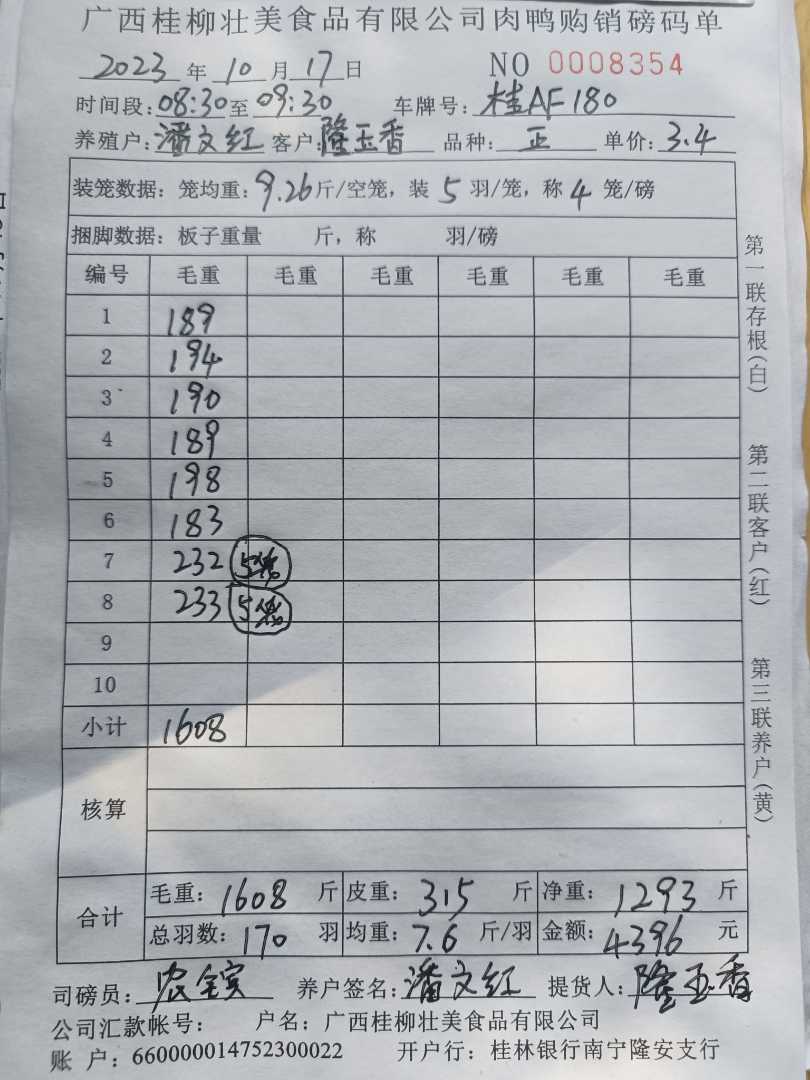 广西桂柳壮美食品有限公司肉鸭购销磅码单
2023 年 10 月 17 日 NO 0008354
时间段:08:30至09:30 车牌号:桂AF180
养殖户:潘文红 客户:隆玉香 品种:正 单价:3.4
装笼数据:笼均重:9.26斤/空笼,装 5 羽/笼,称 4 笼/磅
捆脚数据:板子重量 斤,称 羽/磅
编号 毛重 毛重 毛重 毛重 毛重 毛重
1 189
2 194
3 190
4 189
5 198
6 183
7 232 5笼
8 233 5笼
9
10
小计 1608
核算
合计
毛重: 1608 斤 皮重: 315 斤 净重: 1293 斤
总羽数: 170 羽 均重: 7.6 斤/羽 金额: 4396 元
司磅员: 农宝宾 养户签名: 潘文红 提货人: 隆玉香
公司汇款帐号: 户名:广西桂柳壮美食品有限公司
账 户:660000014752300022 开户行:桂林银行南宁隆安支行
第一联存根(白)
第二联客户(红)
第三联养户(黄)